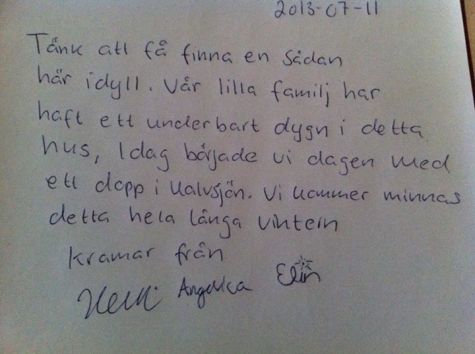 2013-07-11
Tänk att få finna en sådan
här idyll. Vår lilla familj har
haft ett underbart dygn i detta
hus, Idag började vi dagen med
ett dopp i Kalvsjön. Vi kommer minnas
detta hela långa vintern
Kramar från
Angelica Elin